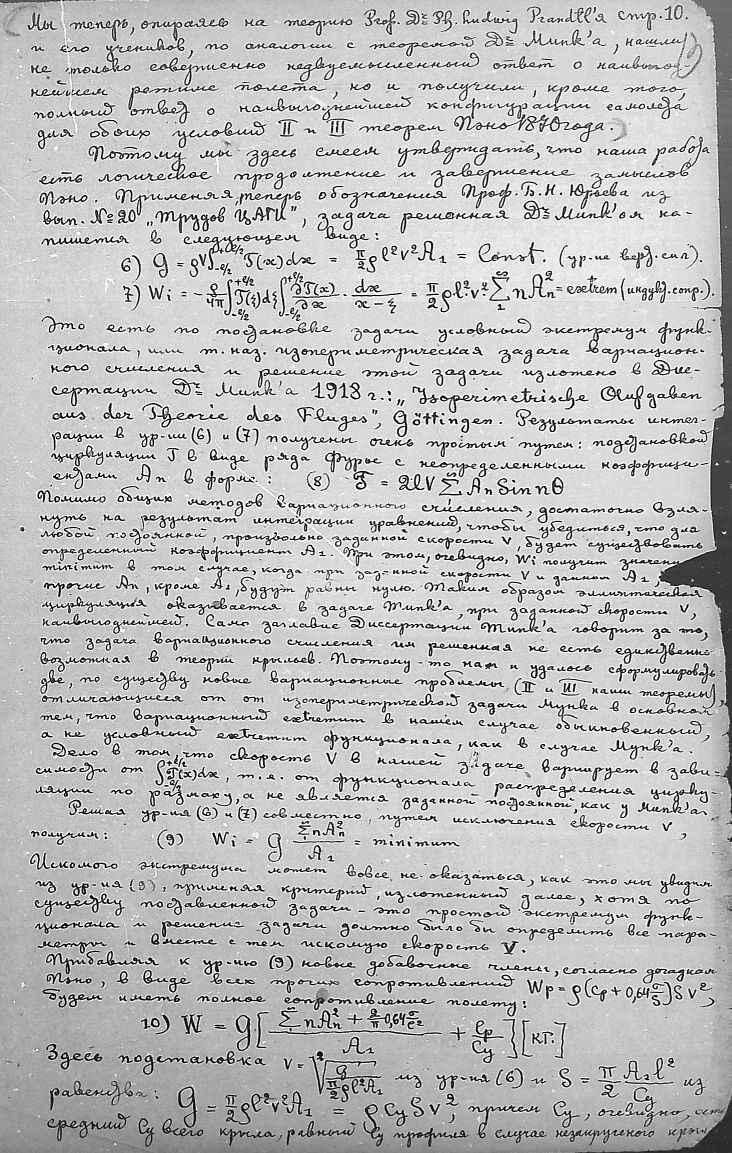 Мы теперь, опираясь на теорию Prof. Dr. Ph. Ludwig Prandtl'я стр. 10.
и его учеников, по аналогии с теоремой Dr. Мунк'а, нашли
не только совершенно недвусмысленный ответ о наивыгод-
нейшем режиме полета, но и получили, кроме того,
полный ответ о наивыгоднейшей конфигурации самолета
для обоих условий II и III теорем Пэно 1870 года.
Поэтому мы здесь смеем утверждать, что наша работа
есть логическое продолжение и завершение замыслов
Пэно. Применяя, теперь обозначения Проф. Б. Н. Юрьева из
вып. № 20 „Трудов ЦАГИ", задача решенная Dr. Мунк'ом на-
пишется в следующем виде:
6) G = ρV∫₋ₑ/₂⁺ᵉ/² Γ(x)dx = π/2 ρl²v²A₁ = Const. (ур-ие верт. сил).
7) Wi = -ρ/4π ∫₋ₑ/₂⁺ᵉ/² Γ(ξ)dξ ∫₋ₑ/₂⁺ᵉ/² ∂Γ(x)/∂x · dx/x-ξ = π/2 ρl²v² ∑₁^∞ nAn² = extrem (индукт. сопр.).
Это есть по постановке задачи условный экстремум функ-
ционала, или т. наз. изопериметрическая задача вариацион-
ного счисления и решение этой задачи изложено в Дис-
сертации Dr. Мунк'а 1918 г.: „Isoperimetrische Aufgaben
aus der Theorie des Fluges", Göttingen. Результаты интег-
рации в ур-ии (6) и (7) получены очень простым путем: подстановкой
циркуляции Γ в виде ряда Фурье с неопределенными коэффици-
ентами An в форме: (8) Γ = 2lV ∑ An Sin nθ
Помимо общих методов вариационного счисления, достаточно взгля-
нуть на результат интеграции уравнений, чтобы убедиться, что для
любой постоянной, произвольно заданной скорости V, будет существовать
определенный коэффициент A₁. При этом, очевидно, Wi получит значение
minimum в том случае, когда при заданной скорости V и данном A₁,
прочие An, кроме A₁, будут равны нулю. Таким образом эллиптическая
циркуляция оказывается в задаче Мунк'а, при заданной скорости V,
наивыгоднейшей. Само заглавие Диссертации Мунк'а говорит за то,
что задача вариационного счисления им решенная не есть единственно
возможная в теории крыльев. Поэтому-то нам и удалось сформулировать
две, по существу новые вариационные проблемы, (II и III наши теоремы),
отличающиеся от от изопериметрической задачи Мунка в основной
тем, что вариационный extremum в нашем случае обыкновенный,
а не условный extremum функционала, как в случае Мунк'а.
Дело в том, что скорость V в нашей задаче варьирует в зави-
симости от ∫₋ₑ/₂⁺ᵉ/² Γ(x)dx, т.е. от функционала распределения цирку-
ляции по размаху, а не является заданной постоянной, как у Мунк'а.
Решая ур-ия (6) и (7) совместно, путем исключения скорости V,
получим: (9) Wi = G ∑₁^∞ nAn² / A₁ = minimum
Искомого экстремума может вовсе не оказаться, как это мы увидим
из ур-ия (9), применяя критерий, изложенный далее, хотя по
существу поставленной задачи - это простой экстремум функ-
ционала и решение задачи должно было бы определить все пара-
метры и вместе с тем искомую скорость V.
Прибавляя к ур-ию (9) новые добавочные члены, согласно догадкам
Пэно, в виде всех прочих сопротивлений Wp = ρ(Cp + 0,64 σ/S) S v²,
будем иметь полное сопротивление полету:
10) W = G [ (∑ nAn² + 2/π 0,64 σ/l²) / A₁ + Cp/Cy ] [кг.]
Здесь подстановка V = ²√(G / (π/2 ρl²A₁)) из ур-ия (6) и S = π/2 A₁l²/Cy из
равенства: G = π/2 ρl²v²A₁ = ρCySv², причем Cy, очевидно, есть
средний Cy всего крыла, равный Cy профиля в случае незакрученого